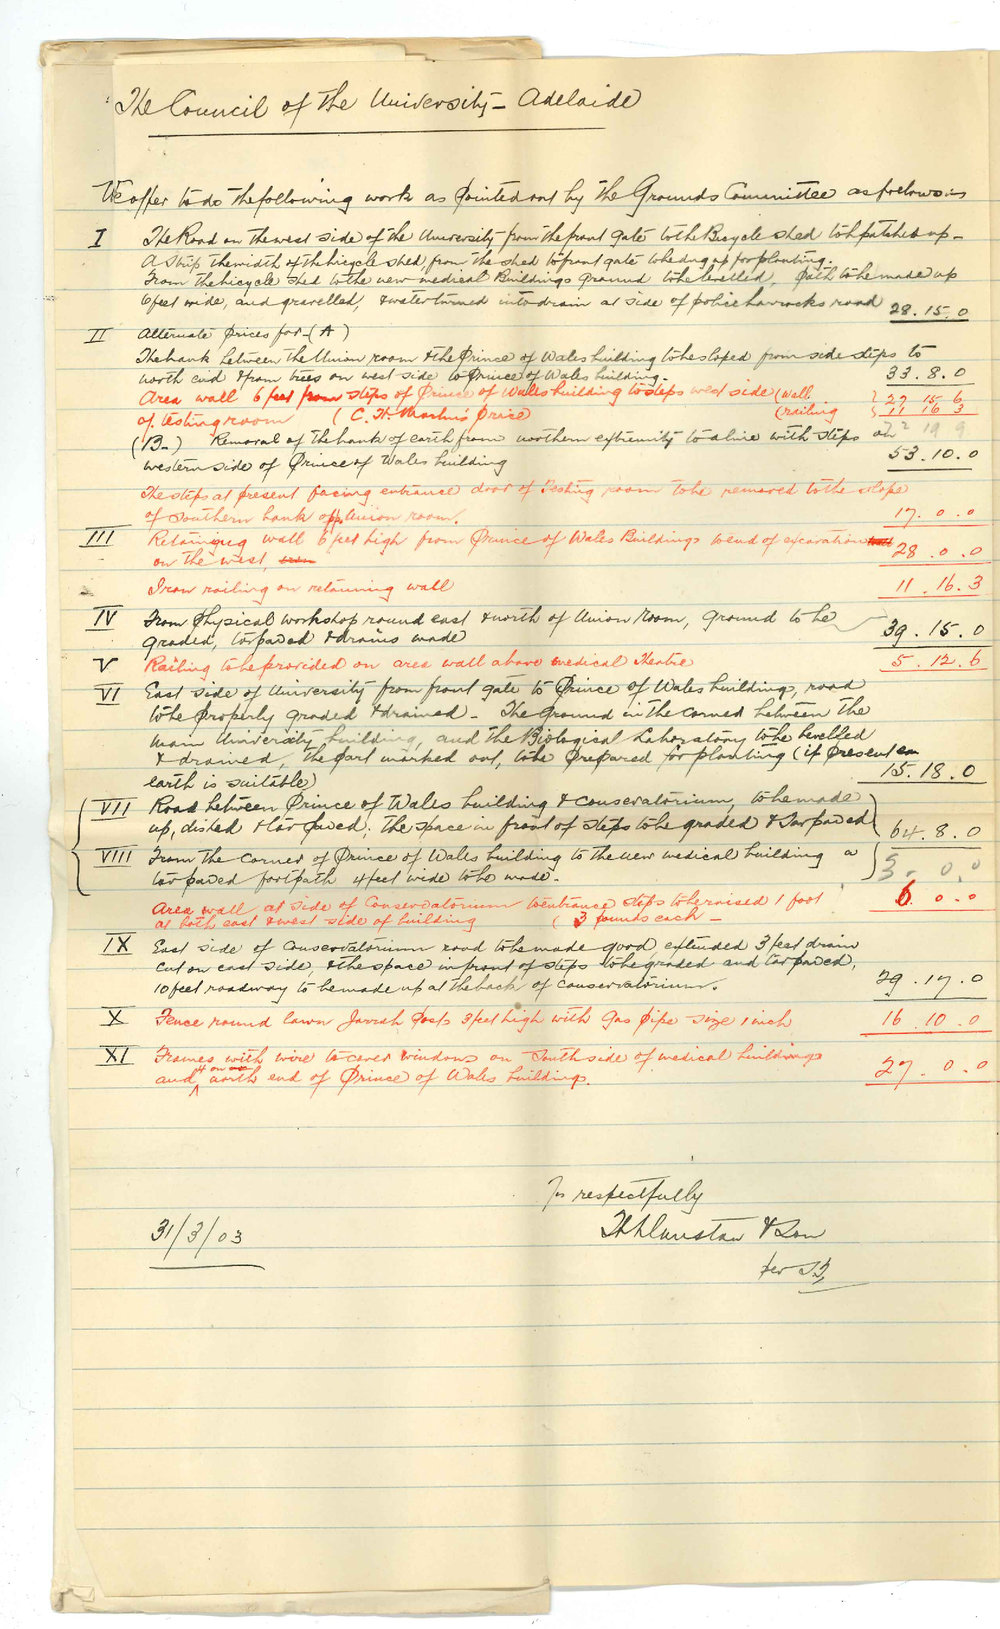 The Council of the University - Adelaide
We offer to do the following work as pointed out by the Grounds Committee as follows
I The Road on the west side of the University from the front gate to the Bicycle shed to be patched up -
A strip the width of the bicycle shed from the shed to front gate to be dug up for planting.
From the bicycle shed to the new medical Buildings ground to be levelled, path to be made up
6 feet wide, and gravelled, & water turned into drain at side of police barracks road 28.15.0
II Alternate prices for - (A)
The bank between the Union room & the Prince of Wales building to be sloped from side steps to
north end & from trees on west side to Prince of Wales building. 33.8.0
Area wall 6 feet from steps of Prince of Wales building to steps west side (wall. } 27 15 6
of testing room (C. H. Martin's price) (railing } 11 16 3
(B.) Removal of the bank of earth from northern extremity to a line with steps on
western side of Prince of Wales building 53.10.0
The steps at present facing entrance door of Testing room to be removed to the slope
of southern bank opp. Union room. 17.0.0
III Retaining wall 6 feet high from Prince of Wales Buildings to end of excavation
on the west, 28.0.0
Iron railing on retaining wall 11.16.3
IV From Physical workshop round east & north of Union Room, ground to be
graded, tarpaved & drains made 39.15.0
V Railing to be provided on area wall above medical Theatre 5.12.6
VI East side of University from front gate to Prince of Wales building, road
to be properly graded & drained - The ground in the corner between the
main University building, and the Biological Laboratory to be levelled
& drained, the part marked out, to be prepared for planting (if present
earth is suitable) 15.18.0
VII Road between Prince of Wales building & conservatorium, to be made
up, dished & tar paved; the space in front of steps to be graded & tarpaved 64.8.0
VIII From the corner of Prince of Wales building to the new medical building a
tar paved footpath 4 feet wide to be made. 5.0.0
Area wall at side of Conservatorium to entrance steps to be raised 1 foot
at both east & west side of building (3 pounds each - 6.0.0
IX East side of Conservatorium road to be made good, extended 3 feet drain
cut on east side, & the space in front of steps to be graded and tar paved,
10 feet roadway to be made up at the back of Conservatorium. 29.17.0
X Fence round lawn Jarrah posts 3 feet high with Gas pipe size 1 inch 16.10.0
XI Frames with wire to cover windows on South side of medical buildings
and 4 on north end of Prince of Wales buildings. 27.0.0
Yrs respectfully
31/3/03
Dunstan & Son
per